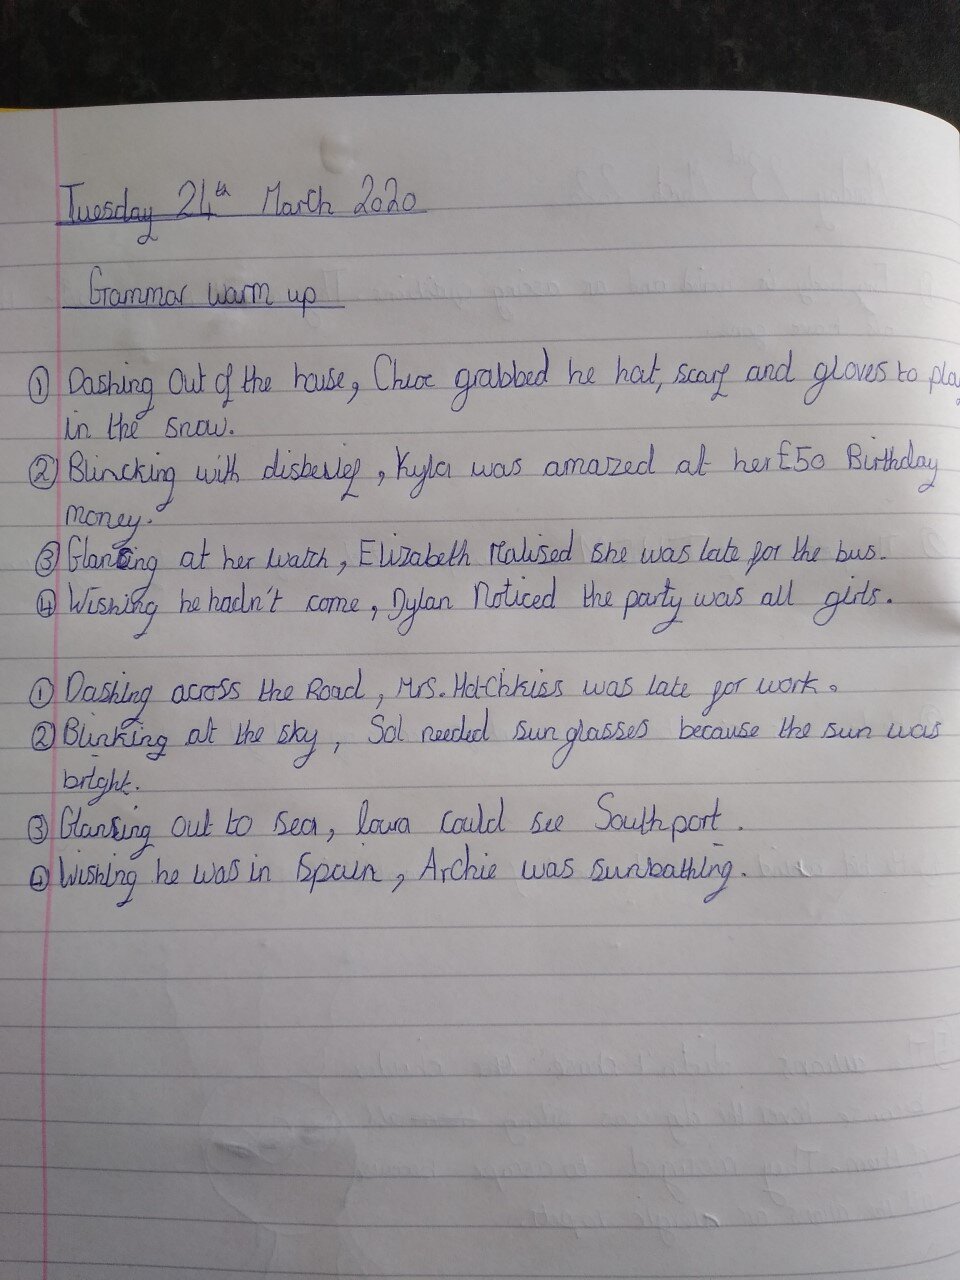 Tuesday 24th March 2020
Grammar warm up
① Dashing out of the house, Chloe grabbed he hat, scarf and gloves to play
in the snow.
② Blincking with disbeleif, Kyla was amazed at her £50 Birthday
money.
③ Glancing at her watch, Elizabeth realised she was late for the bus.
④ Wishing he hadn't come, Dylan Noticed the party was all girls.
① Dashing across the Road, Mrs. Hotchkiss was late for work.
② Blinking at the sky, Sol needed sunglasses because the sun was
bright.
③ Glansing out to sea, lowra could see Southport.
④ Wishing he was in Spain, Archie was sunbathing.